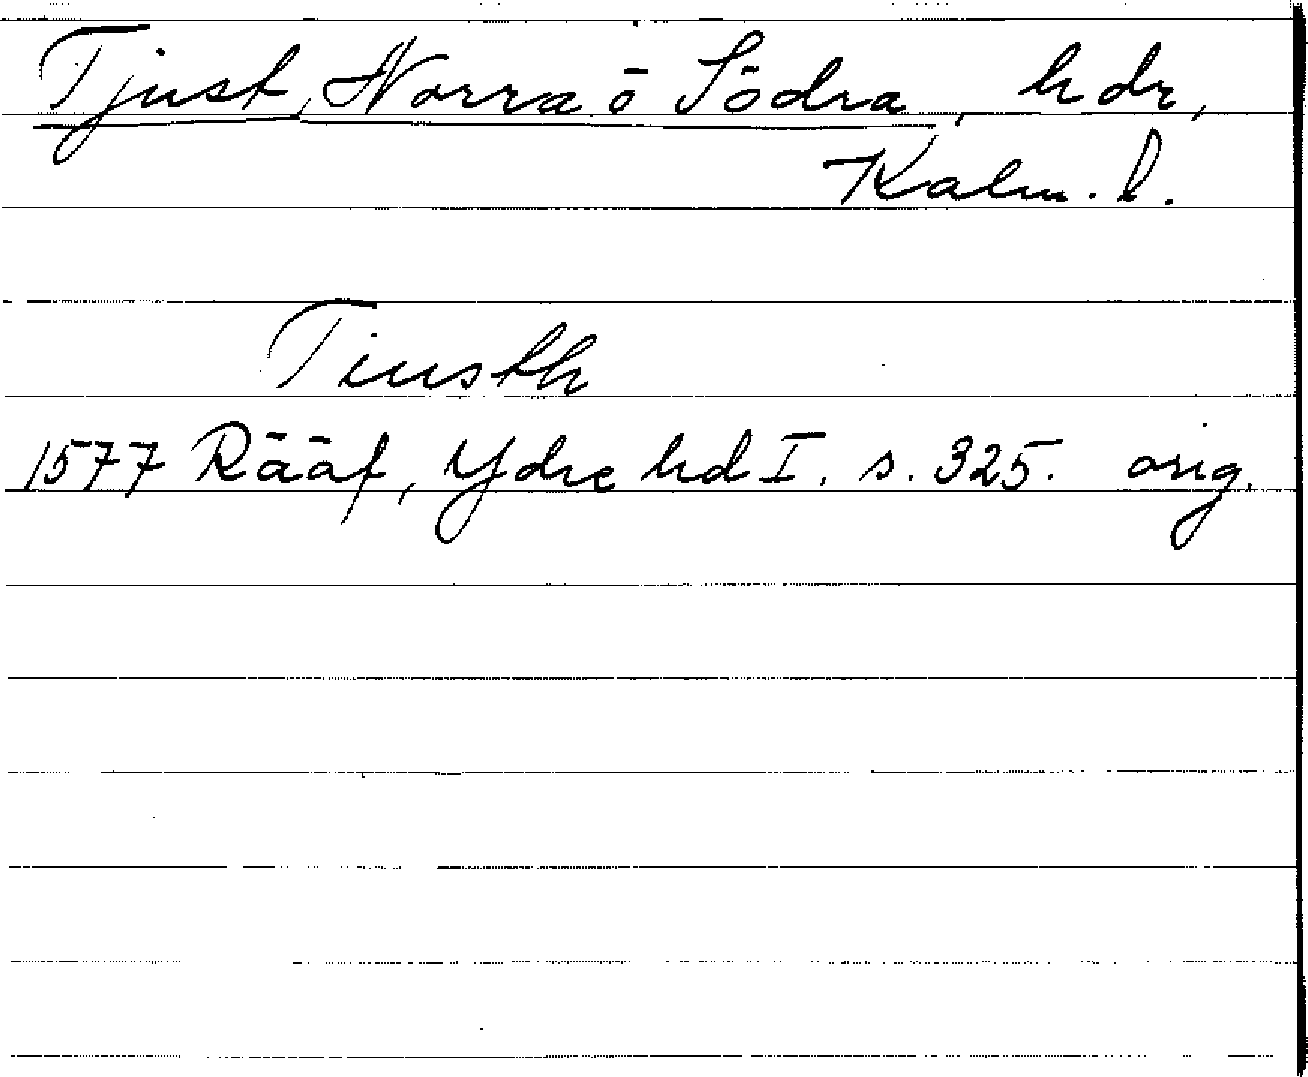 Tjust, Norra o Södra, hdr,
Kalm. l.
Tiusth
1577 Rääf, Ydre hd I. s. 325. orig.